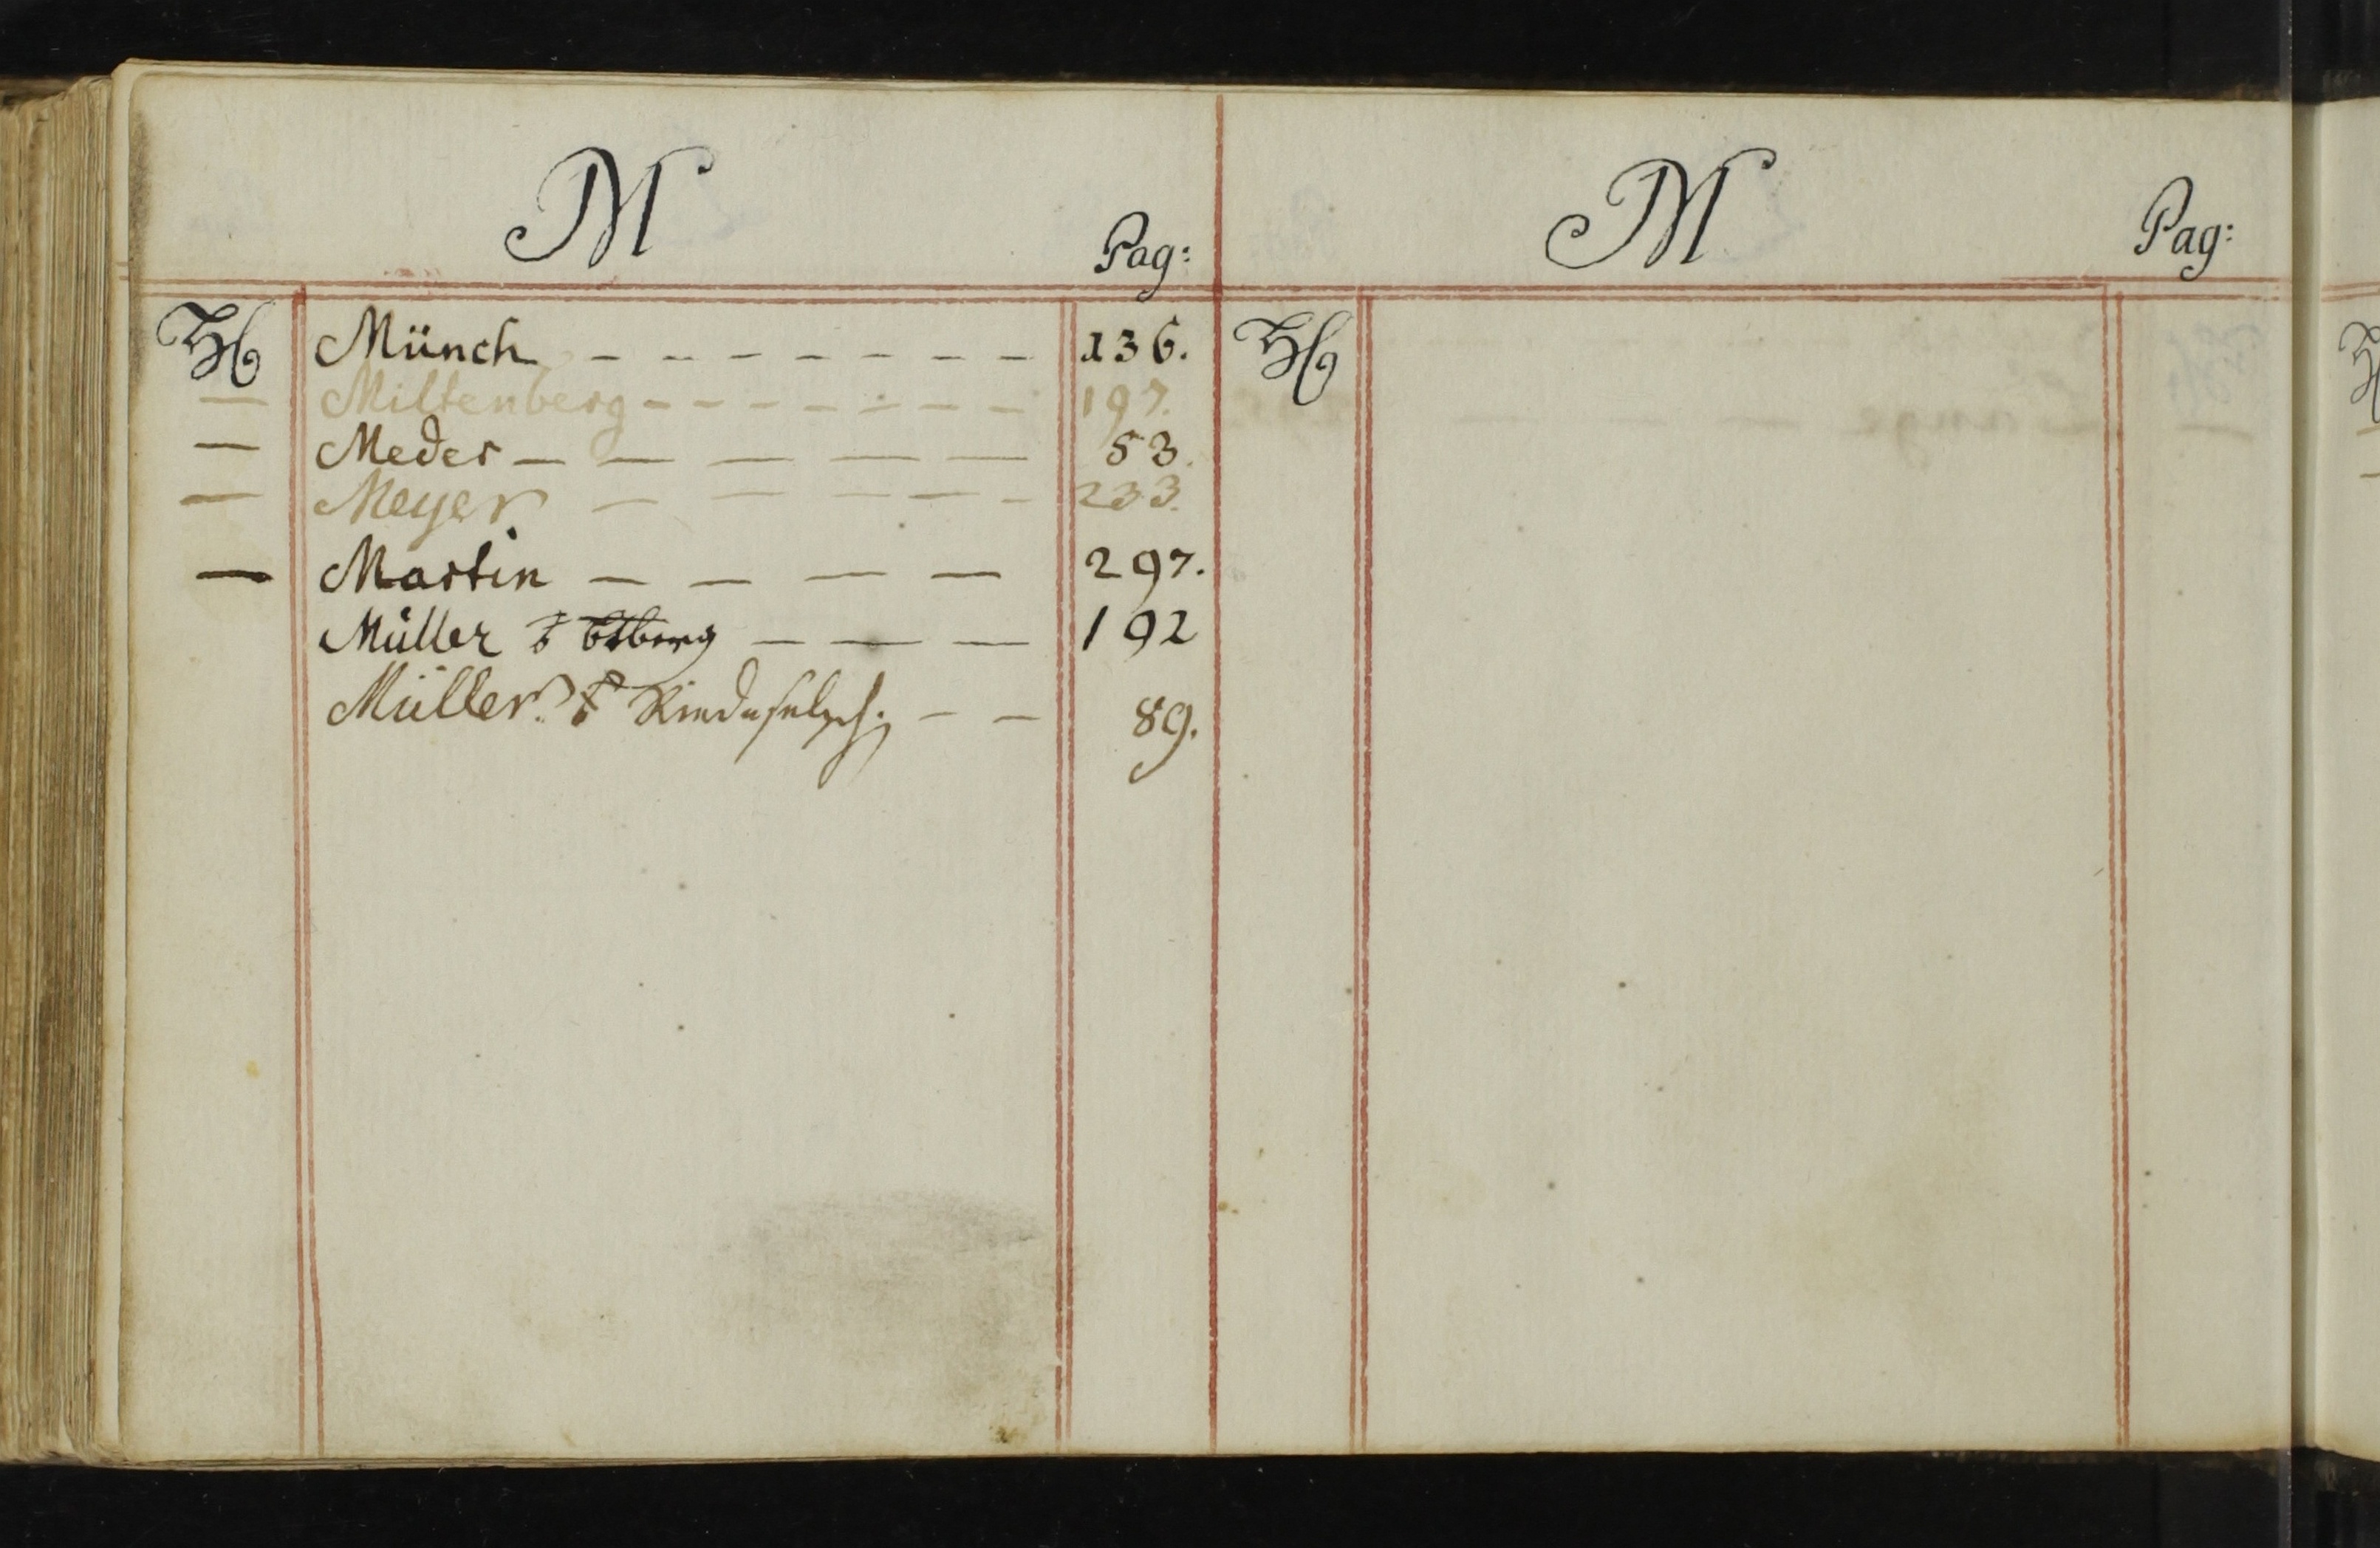 M
Pag:
H Münch - - - - - - - - 136.
— Miltenberg - - - - - - - 197.
— Meder — — — — — 53.
— Meyer — — — — - 233.
— Martin — — — — 297.
Müller — — — 192
Müller — — 89.
M
Pag:
H